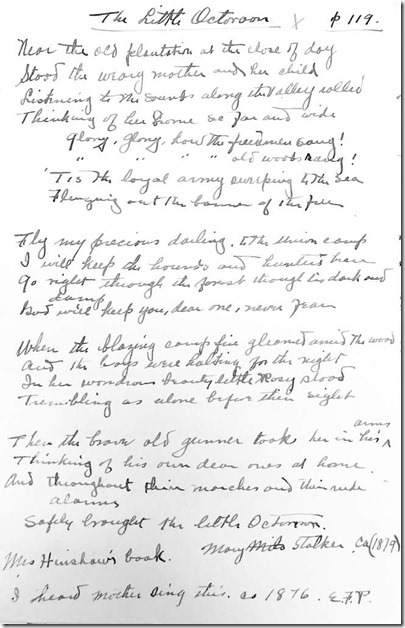 The Little Octoroon X p 119.
Near the old plantation at the close of day
Stood the weary mother and her child
Listening to the sounds along the valley rolled
Thinking of her home so far and wide
Glory, glory, how the freedmen sang!
" " " " old woods rang!
'Tis the loyal army sweeping to the sea
Flinging out the banner of the free
Fly my precious darling, to the Union camp
I will keep the hounds and hunters here
Go right through the forest though tis dark and
damp
God will keep you, dear one, never fear
When the blazing camp fire gleamed amid the wood
And the boys were halting for the night
In her wondrous beauty little Rosy stood
Trembling as alone before their sight
Then the brave old gunner took her in his arms
Thinking of his own dear ones at home.
And throughout their marches and their rude
alarms
Safely brought the little Octoroon.
Mary Stalker. Ca (1879)
Mrs Hinshaw's book.
I heard mother sing this. ca 1876. E.F.P.